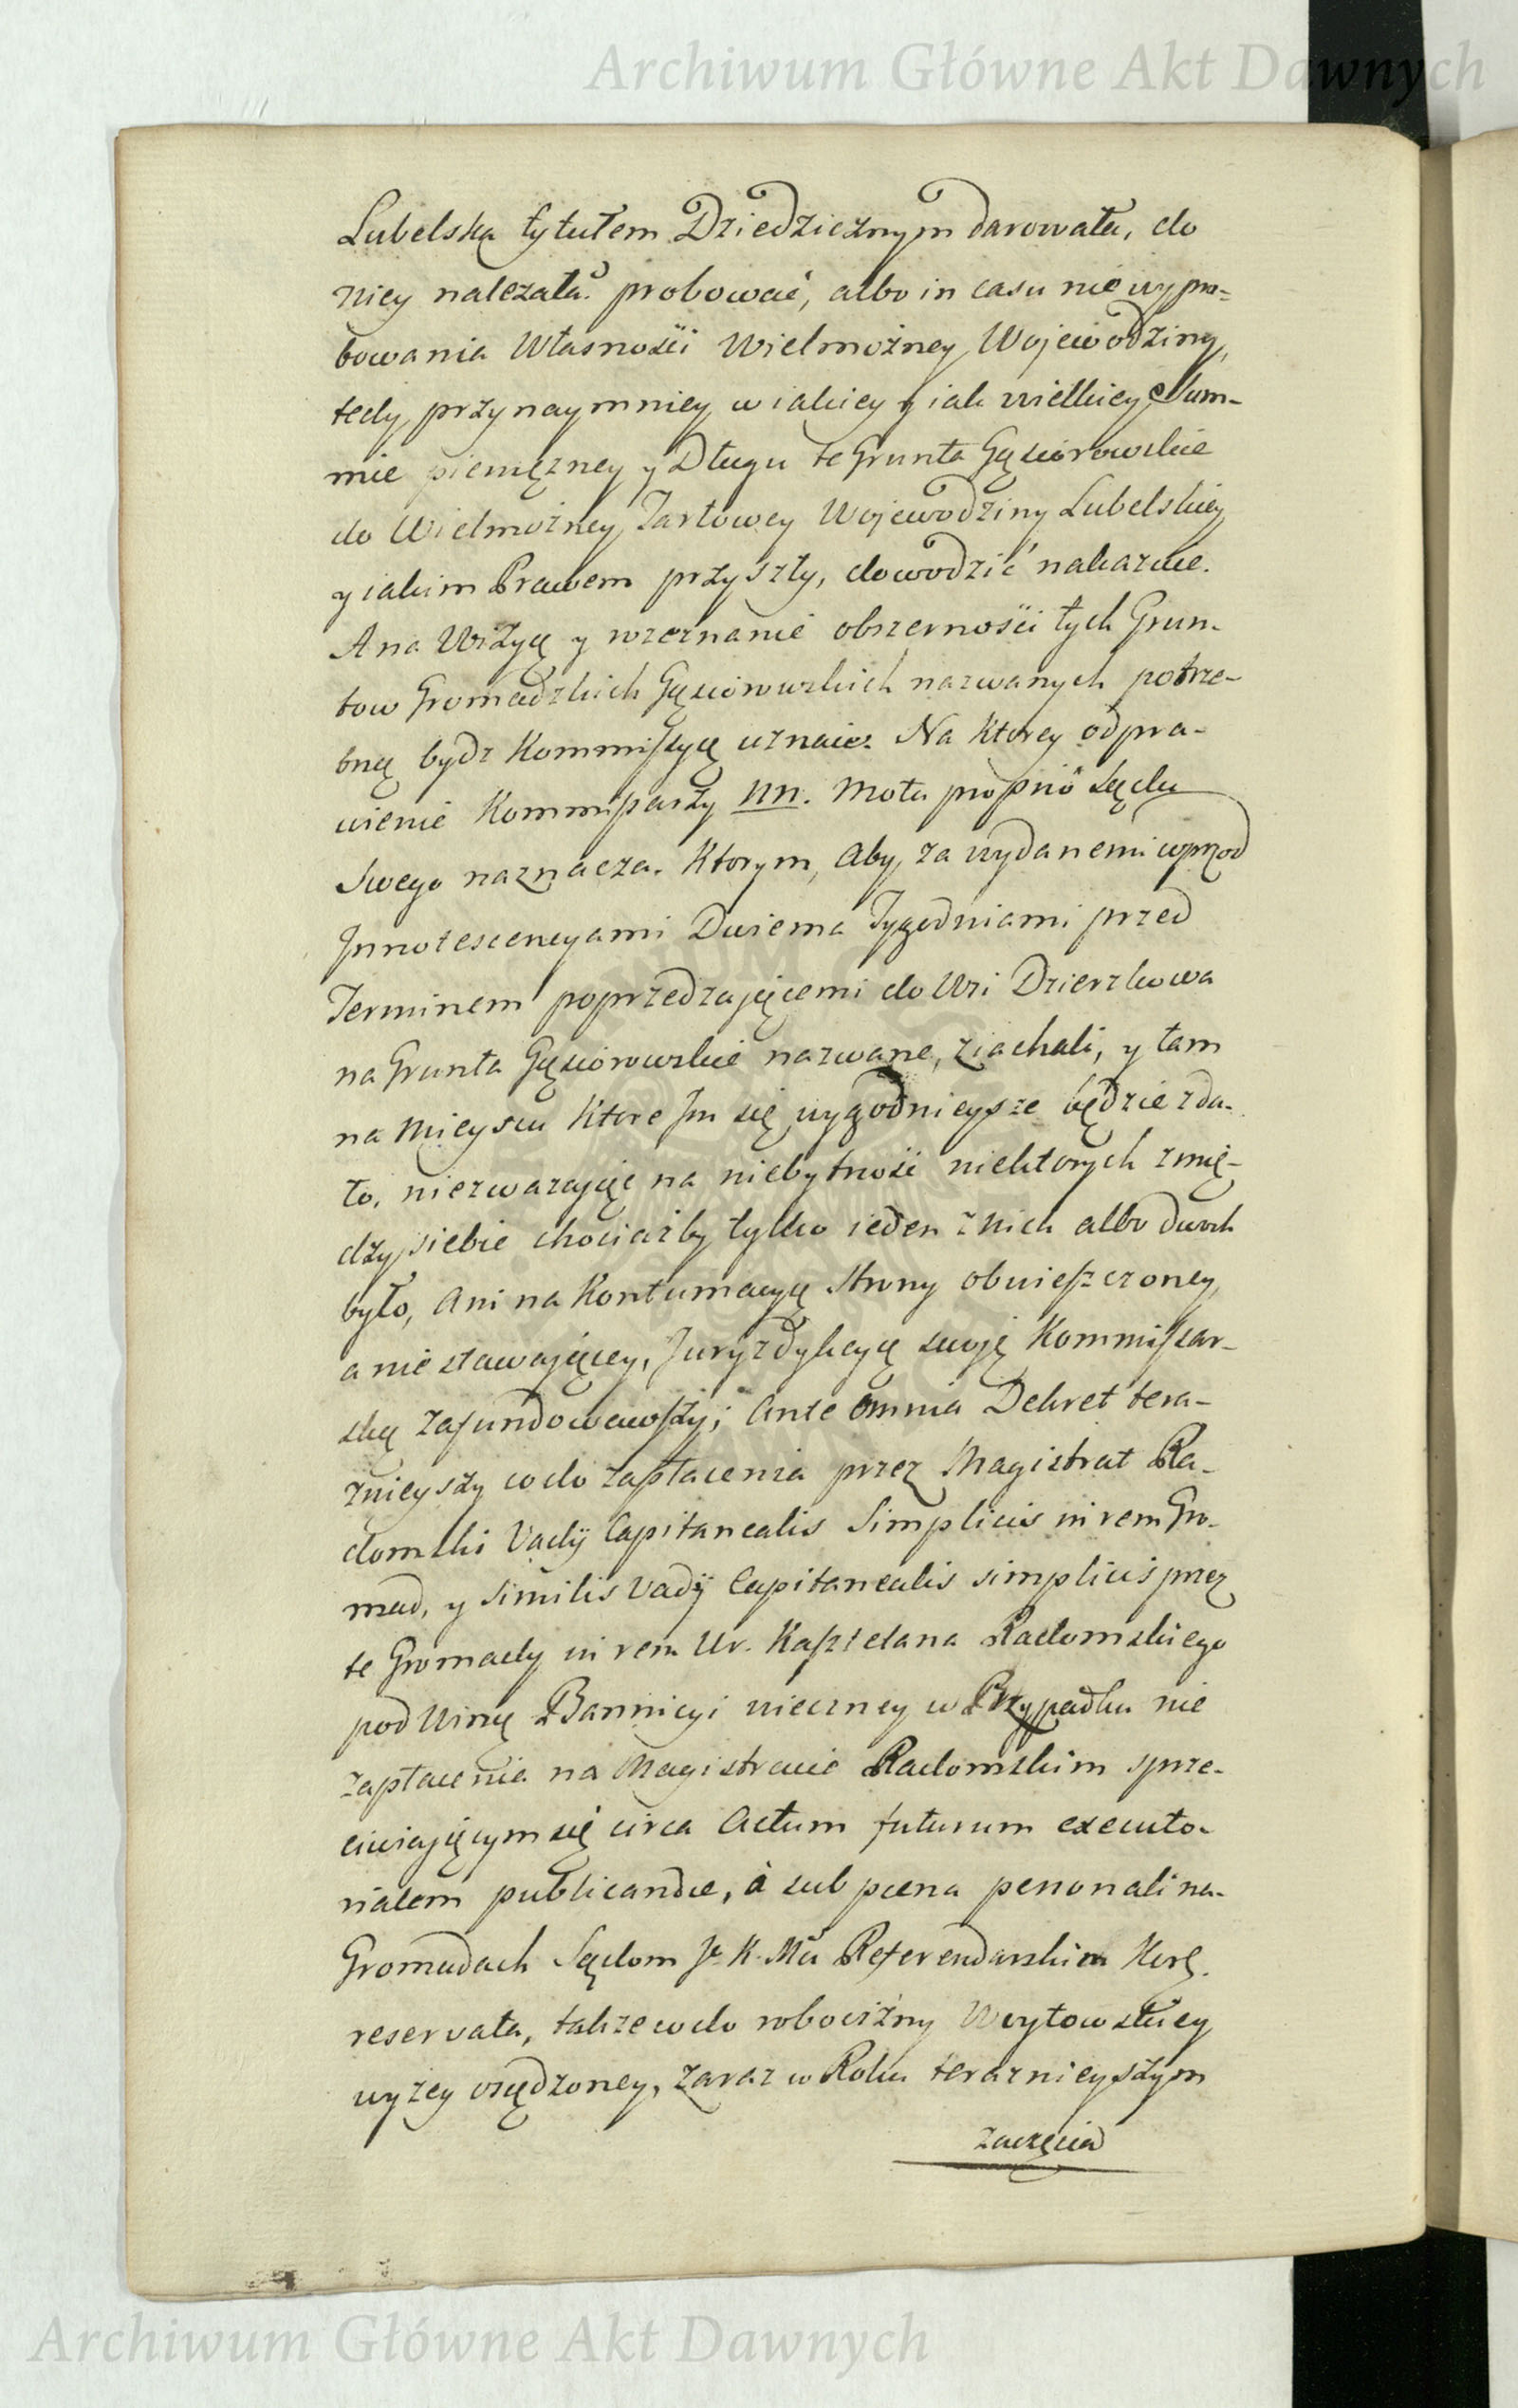 Archiwum Główne Akt Dawnych
Lubelska tytułem Dziedzicznym darowała, do
niey należała? probować, albo in casu nie wypro=
bowania Własnosći Wielmożney Wojewodziny,
tedy przynaymniey w iakiey y iak wielkiey Sum-
mie pieniężney y Długu te Grunta Gąsiorowskie
do Wielmożney Tarłowey Wojewodziny Lubelskiey
y iakim Prawem przyszły, dowodzić nakazuie.
A na Wizyą y wzeznanie obszernosći tych Grun-
tow Gromadzkich Gąsiorowskich nazwanych potrze-
bną bydz Kommissyą uznaie. Na ktorey odpra-
wienie Kommissarzy NN. Motu proprio Sądu
Swego naznacza. Ktorym, Aby za wydanemi wprzod
Innotescencyami Dwiema Tygodniami przed
Terminem poprzedzaiącemi do Wsi Dzierzkowa
na Grunta Gąsiorowskie nazwane, ziachali, y tam
na Mieyscu Ktore Im się wygodnieysze będzie zda-
ło, niezwazaiąc na niebytność niektorych zmię-
dzy siebie chociażby tylko ieden z nich albo dwoch
było, Ani na Kontumacyą Strony obwieszczoney,
a nie stawaiącey, Juryzdykcyą swoię Kommissar-
ską zafundowawszy; Ante omnia Dekret tera-
znieyszy co do zapłacenia przez Magistrat Ra-
domski Vadij Capitanealis Simplicis in rem Gro-
mad, y similis Vadij Capitanealis simplicis przez
te Gromady in rem Ur. Kasztelana Radomskiego
pod Winą Bannicyi wieczney w Przypadku nie
zapłacenia na Magistracie Radomskim sprze-
ciwiaiącym się circa Actum futurum executo-
rialem publicandae, à sub poena personali na-
Gromadach Sądom Je K. Mći Referendarskim Kor.
reservata, takze co do robocizny Woytowskiey
wyzey osądzoney, zaraz w Roku teraznieyszym
zaczącia
Archiwum Główne Akt Dawnych